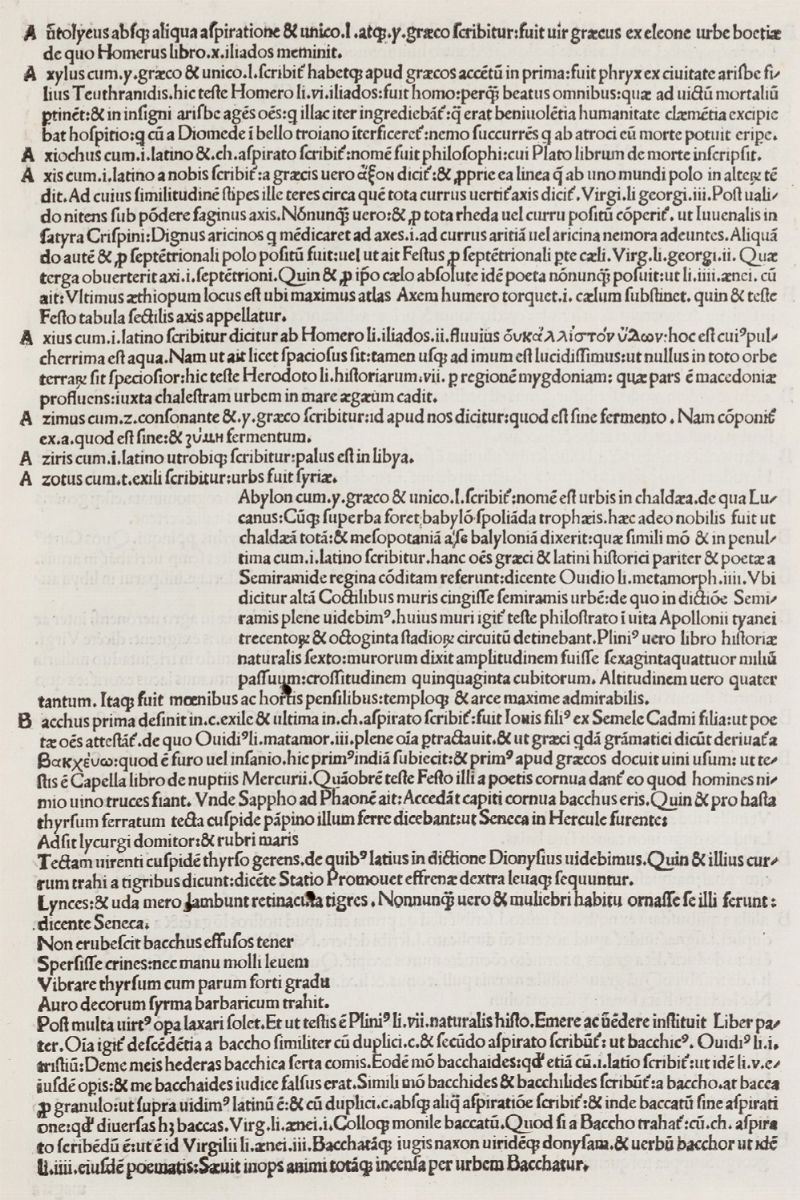 A ũtolycus absq; aliqua aspiratione & unico.l.atq;.y.græco scribitur:fuit uir græcus ex eleone urbe boetiæ
de quo Homerus libro.x.iliados meminit.
A xylus cum.y.græco & unico.l.scribit̃ habetq; apud græcos accẽtũ in prima:fuit phryx ex ciuitate arisbe fi⸗
lius Teuthranidis.hic teste Homero li.vi.iliados:fuit homo:perq̃; beatus omnibus:quæ ad uictũ mortaliũ
ptinẽt:& in insigni arisbe agẽs oẽs:q illac iter ingrediebãt̃:q̃ erat beniuolẽtia humanitate clæmẽtia excipie
bat hospitio:q cũ a Diomede ĩ bello troiano ĩterficeret̃:nemo succurrẽs q ab atroci eũ morte potuit eripe.
A xiochus cum.i.latino &.ch.aspirato scribit̃:nomẽ fuit philosophi:cui Plato librum de morte inscripsit.
A xis cum.i.latino a nobis scribit̃:a græcis uero ἄξον dicit̃:& ꝓprie ea linea q̃ ab uno mundi polo in alteꝝ tẽ
dit. Ad cuius similitudinẽ stipes ille teres circa quẽ tota currus uertit̃ axis dicit̃. Virgi.li georgi.iii. Post uali⸗
do nitens sub põdere faginus axis. Nõnunq̃; uero:& ꝓ tota rheda uel curru positũ cõperit̃. ut Iuuenalis in
satyra Crispini: Dignus aricinos q mẽdicaret ad axes.i.ad currus aritiã uel aricina nemora adeuntes. Aliquã
do autẽ & ꝓ septẽtrionali polo positũ fuit:uel ut ait Festus ꝓ septẽtrionali pte cæli. Virg.li.georgi.ii. Quæ
terga obuerterit axi.i.septẽtrioni. Quin & ꝓ ip̃o cælo absolute idẽ poeta nõnunq̃; posuit:ut li.iiii.ænei. cũ
ait: Vltimus æthiopum locus est ubi maximus atlas Axem humero torquet.i. cælum substinet. quin & teste
Festo tabula sectilis axis appellatur.
A xius cum.i.latino scribitur dicitur ab Homero li.iliados.ii.fluuius ὃυκάλλιστόν ὕδων:hoc est cuiꝰpul⸗
cherrima est aqua. Nam ut ait licet spaciosus sit:tamen usq; ad imum est lucidissimus:ut nullus in toto orbe
terraꝝ sit speciosior:hic teste Herodoto li.historiarum.vii. p regionẽ mygdoniam: quæ pars ẽ macedoniæ
profluens:iuxta chalestram urbem in mare ægæum cadit.
A zimus cum.z.consonante &.y.græco scribitur:id apud nos dicitur:quod est sine fermento . Nam cõponit̃
ex.a.quod est sine:& ȝύμη fermentum.
A ziris cum.i.latino utrobiq; scribitur:palus est in libya.
A zotus cum.t.exili scribitur:urbs fuit syriæ.
Abylon cum.y.græco & unico.l.scribit̃:nomẽ est urbis in chaldæa.de qua Lu⸗
canus:Cũq; superba foret babylõ spoliãda trophæis.hæc adeo nobilis fuit ut
chaldæã totã:& mesopotaniã a̓se balyloniã dixerit:quæ simili mõ & in penul⸗
tima cum.i.latino scribitur.hanc oẽs græci & latini historici pariter & poetæ a
Semiramide regina cõditam referunt:dicente Ouidio li.metamorph.iiii. Vbi
dicitur altã Coctilibus muris cingisse semiramis urbẽ:de quo in dictiõe Semi⸗
ramis plene uidebimꝰ.huius muri igit̃ teste philostrato ĩ uita Apollonii tyanei
trecentoꝝ & octoginta stadioꝝ circuitũ detinebant. Pliniꝰ uero libro historiæ
naturalis sexto:murorum dixit amplitudinem fuisse sexagintaquattuor miliũ
passuum:crossitudinem quinquaginta cubitorum. Altitudinem uero quater
tantum. Itaq; fuit mœnibus ac hortis pensilibus:temploq; & arce maxime admirabilis.
B acchus prima definit in.c.exile & ultima in.ch.aspirato scribit̃:fuit Iouis filiꝰ ex Semele Cadmi filia:ut poe
tæ oẽs attestãt̃.de quo Ouidiꝰli.matamor.iii.plene oĩa ptractauit.& ut græci qdã grãmatici dicũt deriuat̃ a
βακχέυω:quod ẽ furo uel insanio.hic primꝰindiã subiecit:& primꝰ apud græcos docuit uini usum: ut te⸗
stis ẽ Capella libro de nuptiis Mercurii. Quãobrẽ teste Festo illi a poetis cornua dant̃ eo quod homines ni⸗
mio uino truces fiant. Vnde Sappho ad Phaonẽ ait: Accedãt capiti cornua bacchus eris. Quin & pro hasta
thyrsum ferratum tecta cuspide pãpino illum ferre dicebant:ut Seneca in Hercule furente:
Adsit lycurgi domitor:& rubri maris
Tectam uirenti cuspidẽ thyrso gerens.de quibꝰ latius in dictione Dionysius uidebimus. Quin & illius cur⸗
rum trahi a tigribus dicunt:dicẽte Statio Promouet effrenæ dextra leuaq; sequuntur.
Lynces:& uda mero lambunt retinacula tigres . Nonnunq̃; uero & muliebri habitu ornasse se illi ferunt:
dicente Seneca.
Non erubescit bacchus effusos tener
Spersisse crines:nec manu molli leuem
Vibrare thyrsum cum parum forti gradu
Auro decorum syrma barbaricum trahit.
Post multa uirtꝰ opa laxari solet. Et ut testis ẽ Pliniꝰ li.vii.naturalis histo. Emere ac ũẽdere instituit Liber pa⸗
ter. Oĩa igit̃ descẽdẽtia a baccho similiter cũ duplici.c.& secũdo aspirato scribũt̃: ut bacchicꝰ. Ouidiꝰ li.i.
tristiũ: Deme meis hederas bacchica serta comis. Eodẽ mõ bacchaides:qd̃ etiã cũ.i.latio scribit̃:ut idẽ li.v.e⸗
iusdẽ opis:& me bacchaides iudice falsus erat. Simili mõ bacchides & bacchilides scribũt̃:a baccho.at bacca
ꝓ granulo:ut supra uidimꝰ latinũ ẽ:& cũ duplici.c.absq; aliq̃ aspiratiõe scribit̃:& inde baccatũ sine aspirati
one:qd̃ diuersas hȝ baccas. Virg.li.ænei.i. Colloq; monile baccatũ. Quod si a Baccho trahat̃:cũ.ch. aspira
to scribẽdũ ẽ:ut ẽ id Virgilii li.ænei.iii. Bacchatãq; iugis naxon uiridẽq; donysam.& uerbũ bacchor ut idẽ
li.iiii.eiusdẽ poematis: Sæuit inops animi totãq; incensa per urbem Bacchatur.